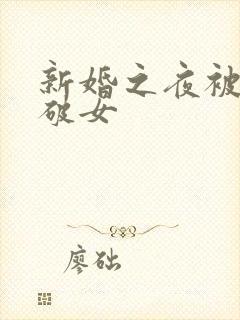 新婚之夜被
破女
廖础